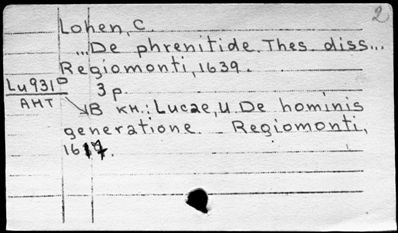 2
Lohen, C.
...De phrenitide. Thes. diss...
Regiomonti, 1639.
Lu931D
3 p.
АНТ
В кн.: Lucae, U. De hominis
generatione. Regiomonti,
1617.